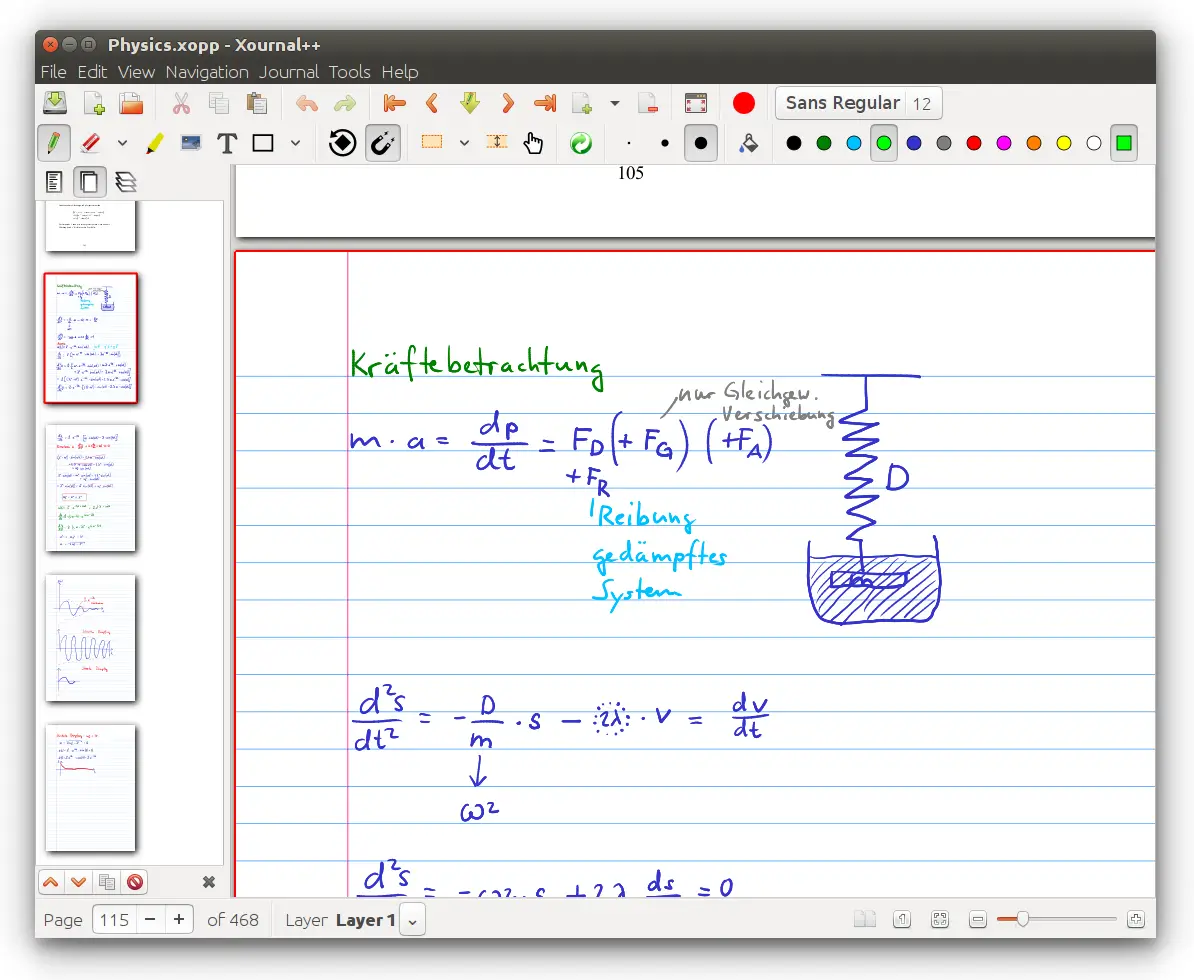 Physics.xopp - Xournal++
File Edit View Navigation Journal Tools Help
Sans Regular 12
T
105
Kräftebetrachtung
nur Gleichgew.
Verschiebung
m · a = dp/dt = F_D (+ F_G) (+F_A)
+ F_R
D
Reibung
gedämpftes
System
m
d²s/dt² = - D/m · s - 2λ · v = dv/dt
↓
ω²
d²s = -ω² · s + 2λ ds = 0
Page 115 − + of 468 Layer Layer 1